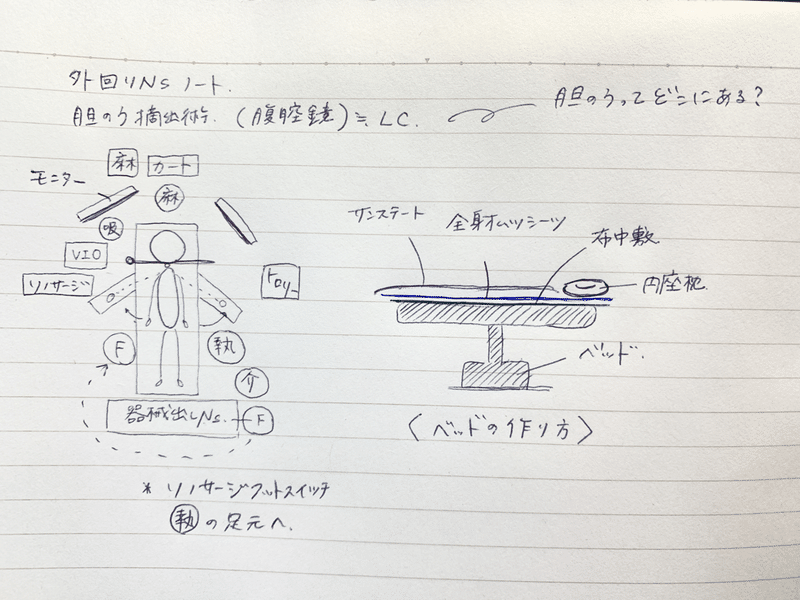 外回りNSノート.
胆のう摘出術. (腹腔鏡)≒LC.
胆のうってどこにある?
麻
カート
モニター
麻
吸
VIO
リハサージ
トロリー
F
執
介
器械出しNs.
F
* リハサージフットスイッチ
執の足元へ.
サンステート
全身オムツシーツ
布中敷
円座枕
ベッド.
〈ベッドの作り方〉